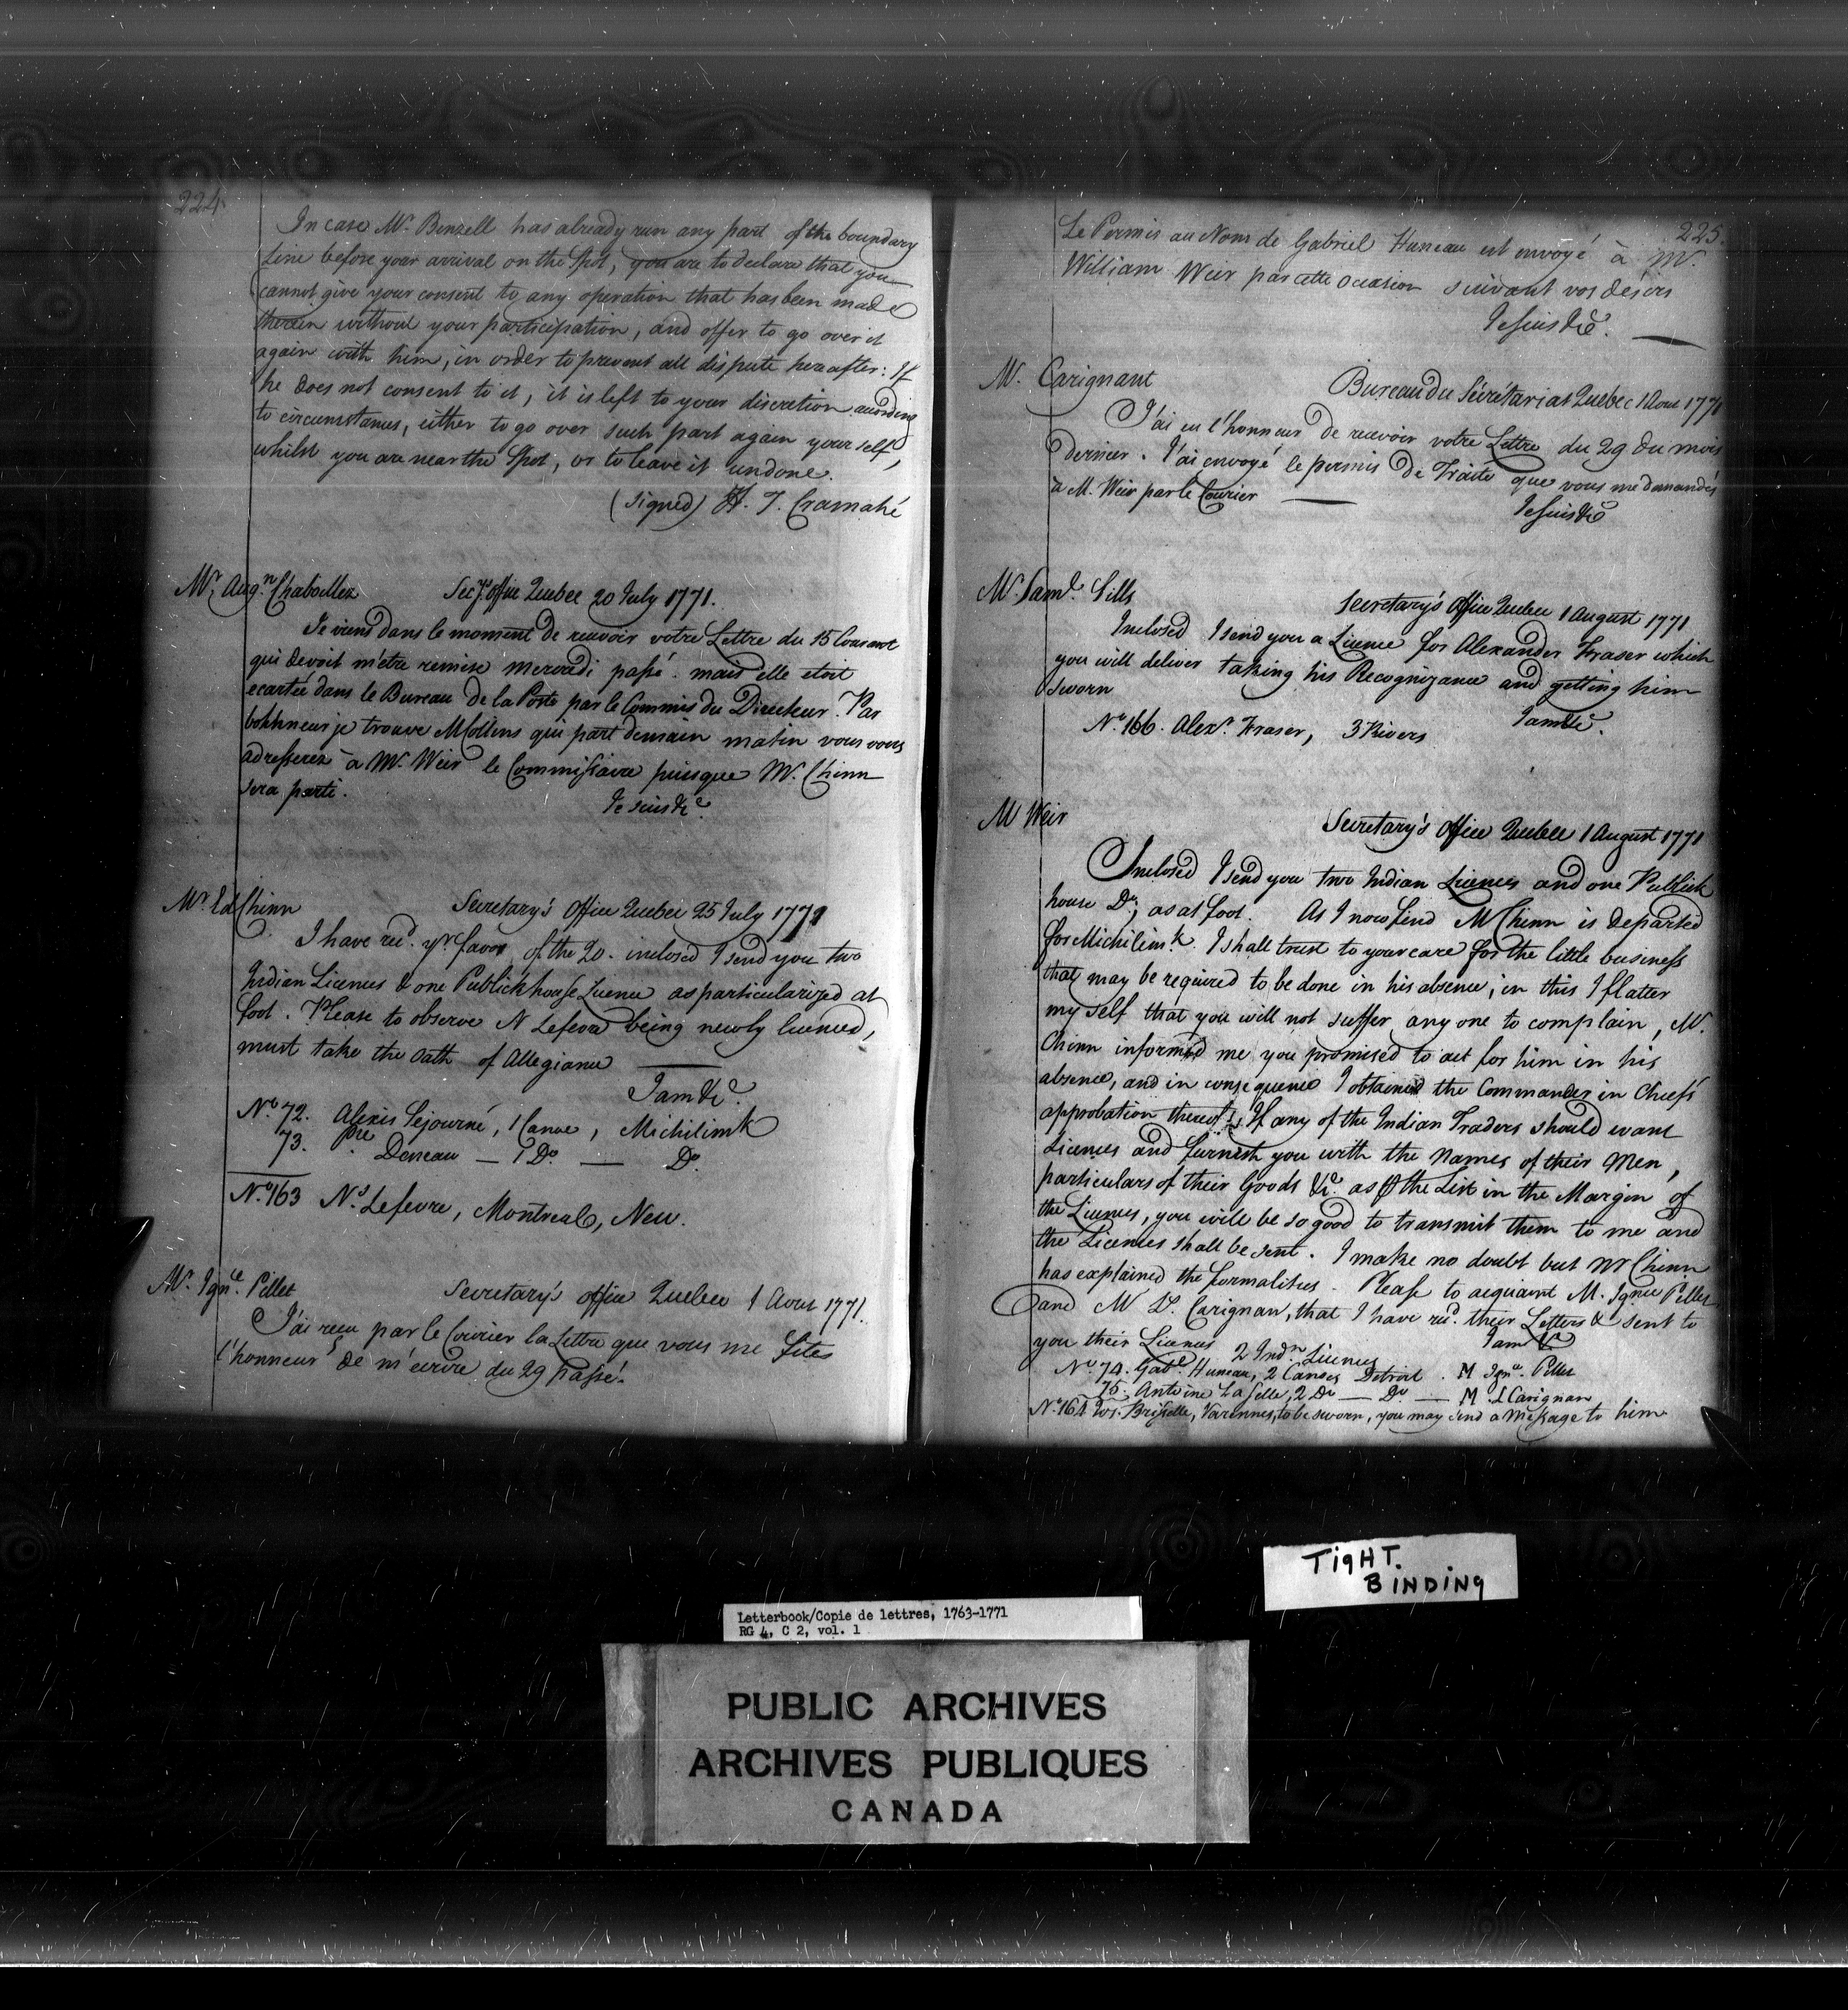 224.
In case Mr. Benzell has already run any part of the boundary
Line before your arrival on the Spot, you are to declare that you
cannot give your consent to any operation that has been made
therein without your participation, and offer to go over it
again with him, in order to prevent all dispute hereafter: If
he does not consent to it, it is left to your discretion according
to circumstances, either to go over such part again yourself,
whilst you are near the Spot, or to leave it undone.
(signed) H. T. Cramahé
Mr. Augn. Chaboillez Secy's office Quebec 20 July 1771.
Je viens dans le moment de recevoir votre Lettre du 15 Courant
qui devoit m'etre remise mercredi passé. mais elle etoit
ecartée dans le Bureau de la Poste par le Commis du Directeur. Par
bohhneur je trouve M Collins qui part demain matin vous vous
adresserez à Mr. Weir le Commissaire puisque Mr. Chinn
sera parti.
Je suis &ce.
Mr. Ed Chinn Secretary's Office Quebec 25 July 1771
I have recd. yr. favor of the 20. inclosed I send you two
Indian Licences & one Publickhouse Licence as particularized at
foot. Please to observe N Lefevre being newly licenced,
must take the Oath of Allegiance
I am &c.
No. 72. Alexis Sejourné, 1 Canoe, Michilimk
73. Pre. Deneau — 1 Do. — Do.
No. 163 Ns. Lefevre, Montreal, New.
Mr. Ignce. Pillet Secretary's office Quebec 1 Aout 1771.
J'ai reçu par le Courier la Lettre que vous me fites
l'honneur de m'ecrire du 29 passé.
225.
Le Permis au Nom de Gabriel Huneau est envoyé à Mr.
William Weir par cette occasion suivant vos désirs
Je suis &ce.
M. Carignant
Bureau du Sécrétariat Quebec 1 Aout 1771
J'ai eu l'honneur de recevoir votre Lettre du 29 du mois
dernier. J'ai envoyé le permis de Traite que vous me demandés
à M. Weir par le Courier
Je suis &c
Mr. Saml. Sills
Secretary's Office Quebec 1 August 1771
Inclosed I send you a Licence for Alexander Fraser which
you will deliver taking his Recognizance and getting him
sworn
I am &c.
No. 166. Alexr. Fraser, 3 Rivers
M Weir
Secretary's Office Quebec 1 August 1771
Inclosed I send you two Indian Licences and one Publick
house Do; as at foot. As I now find M Chinn is departed
for Michilimk. I shall trust to your care for the little business
that may be required to be done in his absence, in this I flatter
my self that you will not suffer any one to complain, Mr.
Chinn informed me you promised to act for him in his
absence, and in consequence I obtained the Commander in Chief's
approbation thereof; If any of the Indian Traders should want
Licences and furnish you with the Names of their Men,
particulars of their Goods &c. as the List in the Margin of
the Licences, you will be so good to transmit them to me and
the Licences shall be sent. I make no doubt but Mr Chinn
has explained the formalities. Please to acquaint M. Ignce Pillet
and M L. Carignan, that I have recd. their Letters & sent to
you their Licences
I am &c
2 Indn. Licences
No. 74. Gabl. Huneau, 2 Canoes Detroit. M Ignce. Pillet
75. Antoine La Selle, 2 Do — Do — M. L Carignan
No. 164 Brisselle, Varennes, to be sworn, you may send a Message to him
TIGHT.
BINDING
Letterbook/Copie de lettres, 1763-1771
RG 4, C 2, vol. 1
PUBLIC ARCHIVES
ARCHIVES PUBLIQUES
CANADA